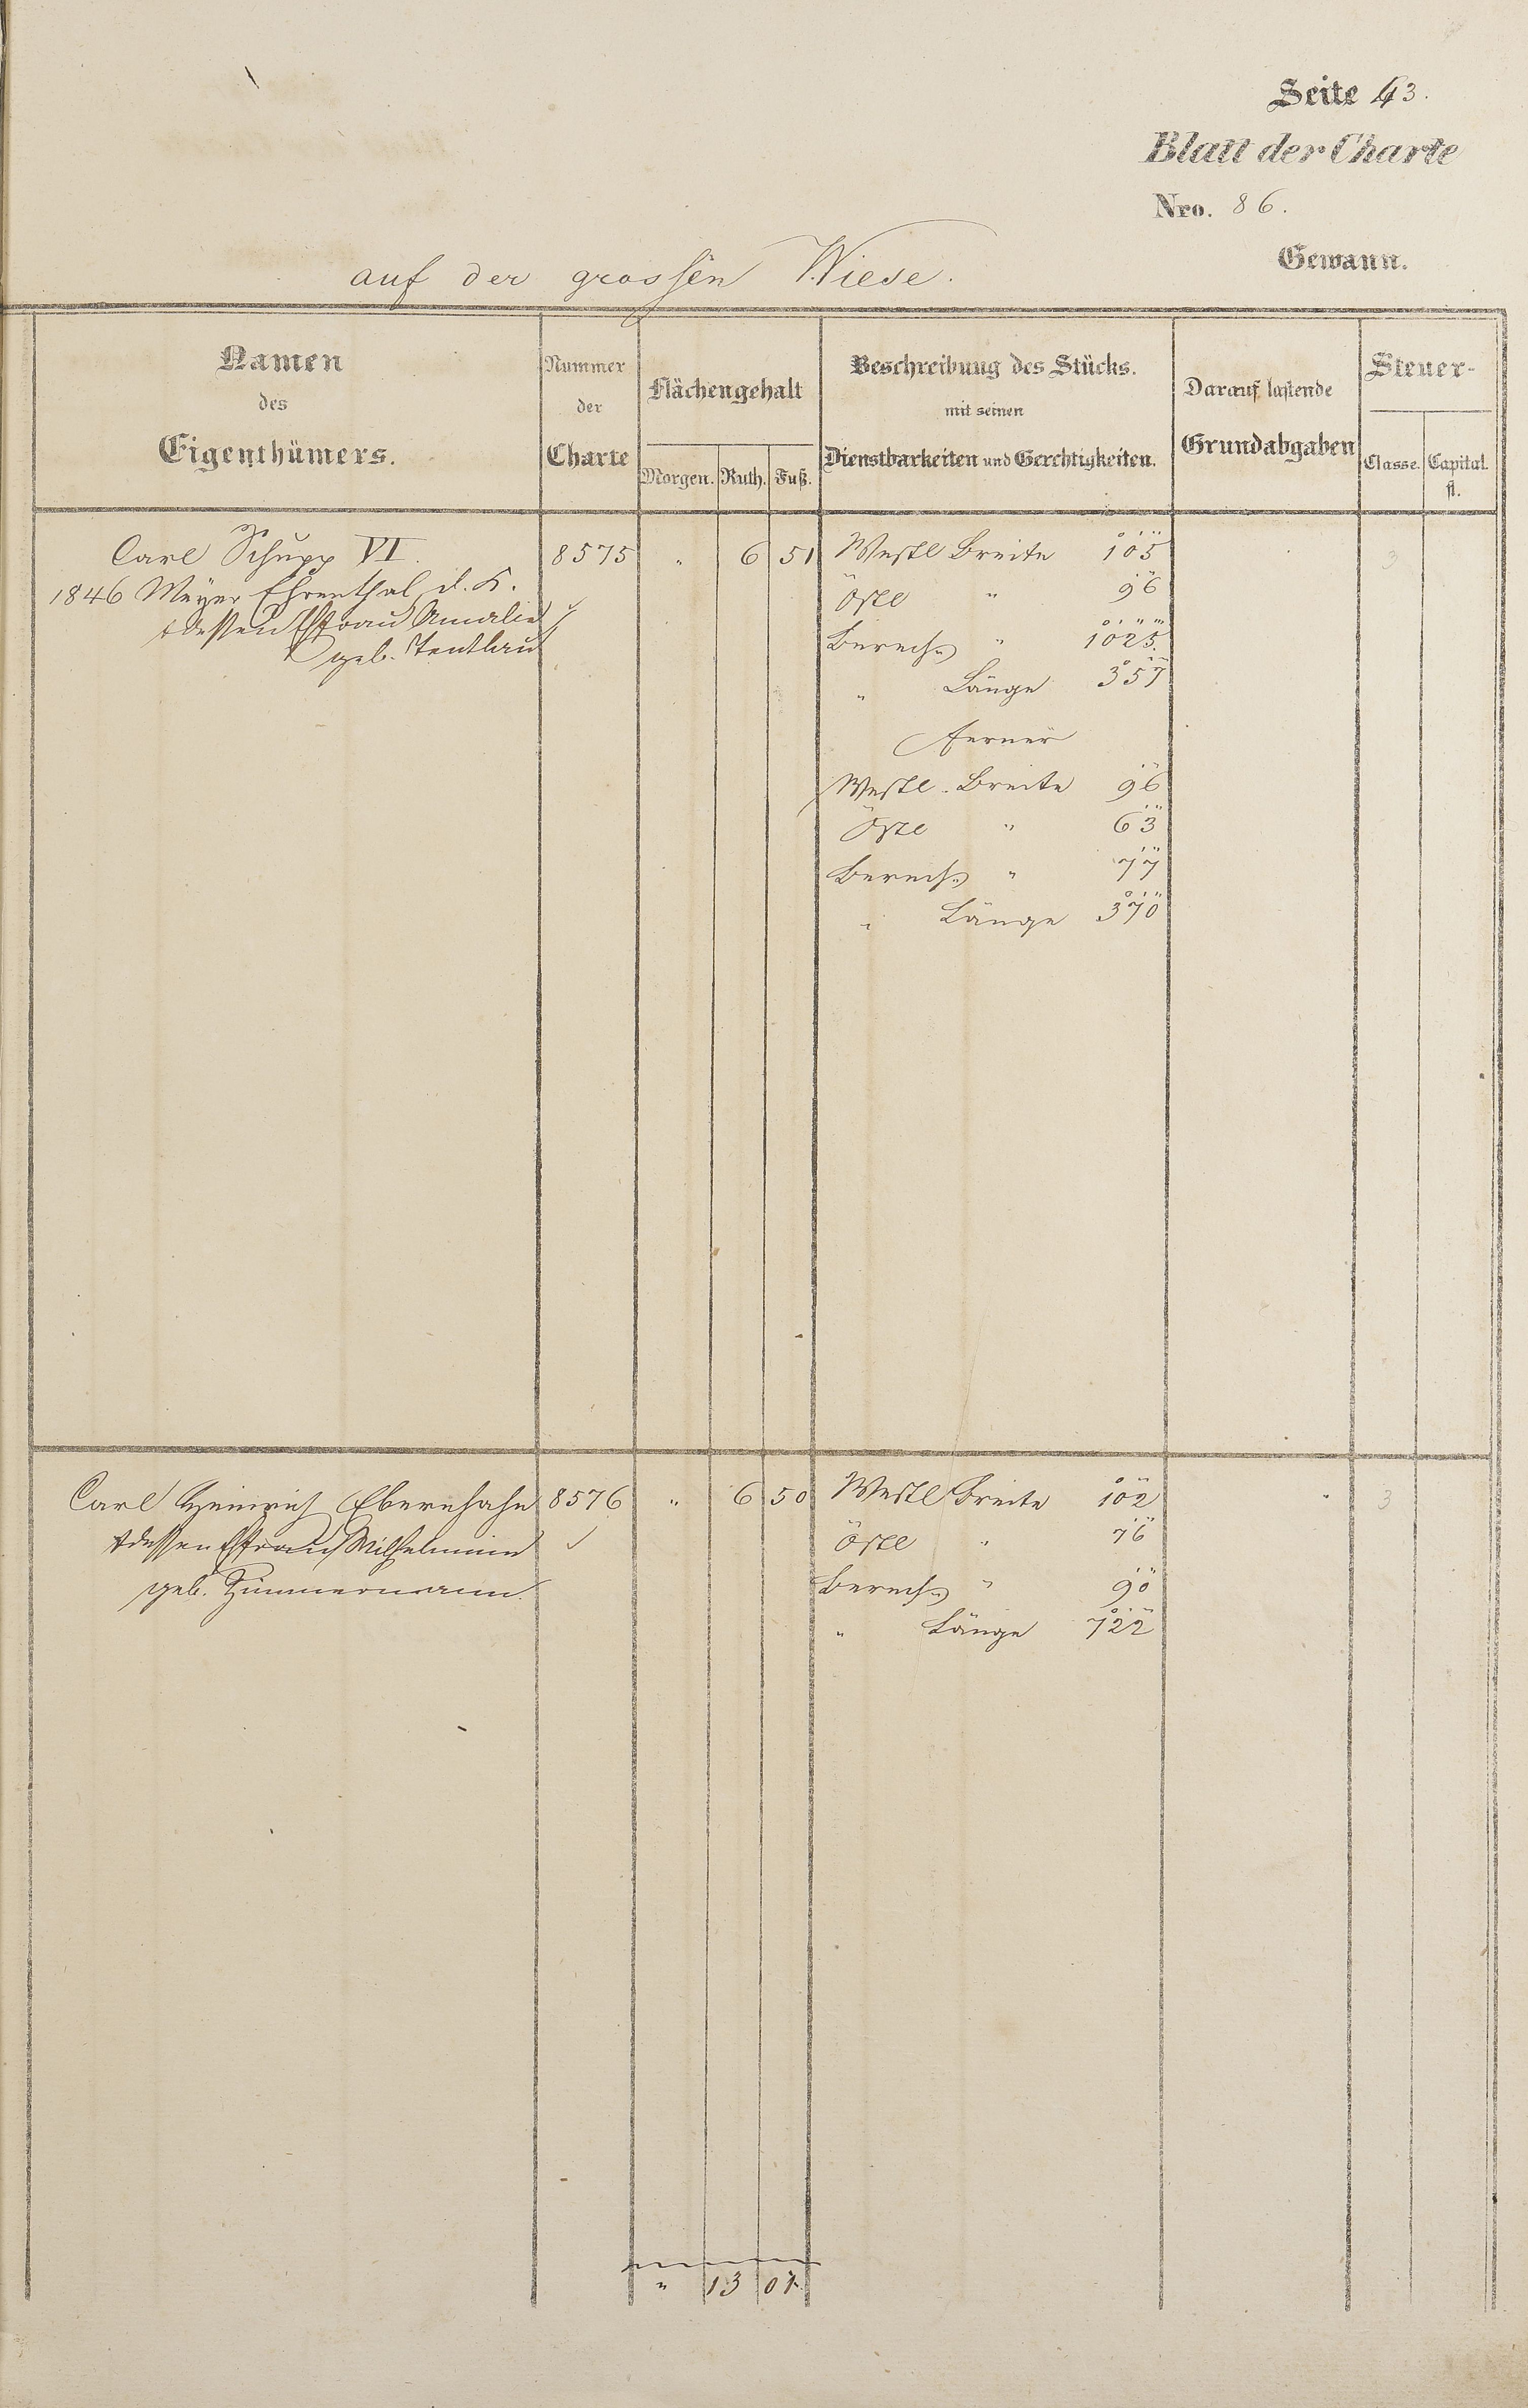 Seite 43.
Blatt der Charte
Nro. 86.
Gewann.
auf der grossen Wiese.
Namen
des
Eigenthümers.
Nummer
der
Charte
Flächengehalt
Morgen. Ruth. Fuß.
Beschreibung des Stücks.
mit seinen
Dienstbarkeiten und Gerechtigkeiten.
Darauf lastende
Grundabgaben
Steuer-
Classe. Capital.
fl.
Carl Schupp VI. 8575 " 6 51 Westl Breite 105 3
1846 Meyer Ehrenthal d. K. Östl " 96
& dessen Ehfrau Amalie Berech. " 1025.
geb. " Länge 357
ferner
Westl. Breite 96
Östl " 63
Berech. " 77
" Länge 370
Carl Heinrich Ebernhahn 8576 " 6 50 Westl Breite 102 3
& dessen Ehfrau Wilhelmine Östl " 76
geb. Zimmermann. Berech. " 90
" Länge 722
" 13 01.